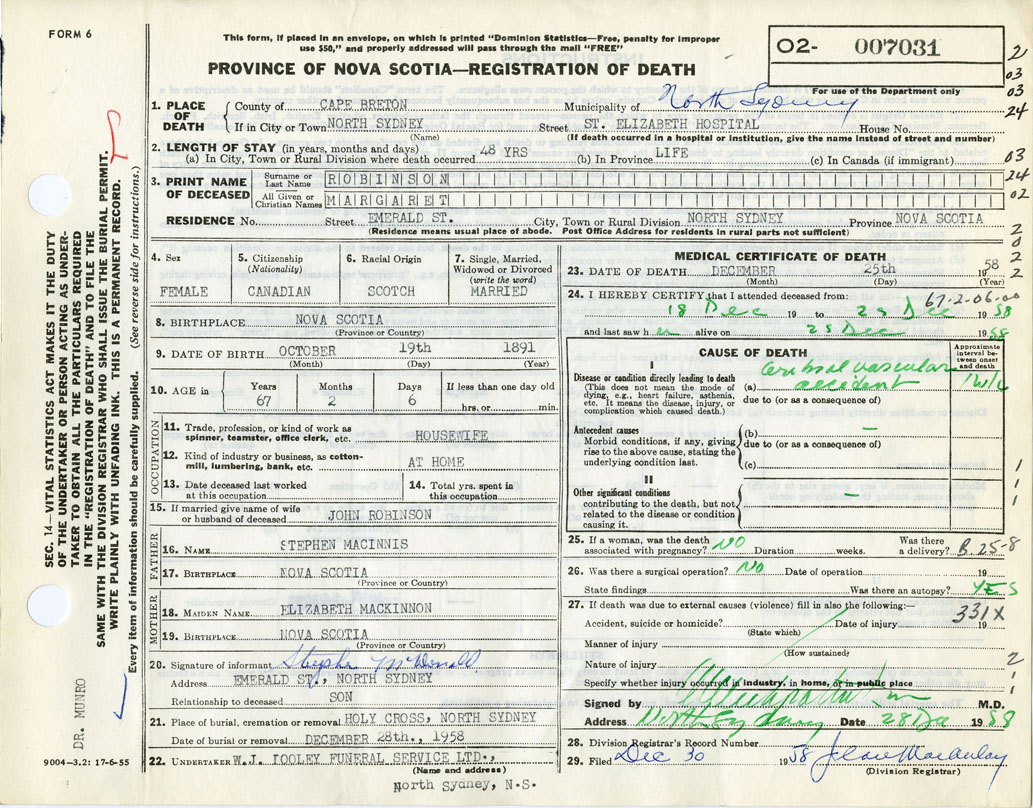 FORM 6
This form, if placed in an envelope, on which is printed "Dominion Statistics—Free, penalty for improper
use $50," and properly addressed will pass through the mail "FREE"
02- 007031
PROVINCE OF NOVA SCOTIA—REGISTRATION OF DEATH
For use of the Department only
2
03
03
24
03
24
02
2
0
2
2
1. PLACE OF DEATH
County of CAPE BRETON Municipality of North Sydney
If in City or Town NORTH SYDNEY Street ST. ELIZABETH HOSPITAL House No.
(Name) (If death occurred in a hospital or institution, give the name instead of street and number)
2. LENGTH OF STAY (in years, months and days)
(a) In City, Town or Rural Division where death occurred 48 YRS (b) In Province LIFE (c) In Canada (if immigrant)
3. PRINT NAME OF DECEASED
Surname or Last Name ROBINSON
All Given or Christian Names MARGARET
RESIDENCE No. Street EMERALD ST. City, Town or Rural Division NORTH SYDNEY Province NOVA SCOTIA
(Residence means usual place of abode. Post Office Address for residents in rural parts not sufficient)
4. Sex
FEMALE
5. Citizenship
(Nationality)
CANADIAN
6. Racial Origin
SCOTCH
7. Single, Married,
Widowed or Divorced
(write the word)
MARRIED
8. BIRTHPLACE NOVA SCOTIA
(Province or Country)
9. DATE OF BIRTH OCTOBER 19th 1891
(Month) (Day) (Year)
10. AGE in
Years Months Days If less than one day old
67 2 6 hrs. or min.
OCCUPATION
11. Trade, profession, or kind of work as
spinner, teamster, office clerk, etc. HOUSEWIFE
12. Kind of industry or business, as cotton-
mill, lumbering, bank, etc. AT HOME
13. Date deceased last worked
at this occupation
14. Total yrs. spent in
this occupation
15. If married give name of wife
or husband of deceased JOHN ROBINSON
FATHER
16. NAME STEPHEN MACINNIS
17. BIRTHPLACE NOVA SCOTIA
(Province or Country)
MOTHER
18. MAIDEN NAME ELIZABETH MACKINNON
19. BIRTHPLACE NOVA SCOTIA
(Province or Country)
20. Signature of informant Stephen McDonald
Address EMERALD ST., NORTH SYDNEY
Relationship to deceased SON
21. Place of burial, cremation or removal HOLY CROSS, NORTH SYDNEY
Date of burial or removal DECEMBER 28th., 1958
22. UNDERTAKER W.J. DOOLEY FUNERAL SERVICE LTD.,
(Name and address)
North Sydney, N.S.
MEDICAL CERTIFICATE OF DEATH
23. DATE OF DEATH DECEMBER 25th 1958
(Month) (Day) (Year)
24. I HEREBY CERTIFY that I attended deceased from: 67-2-06-00
18 Dec 19 to 25 Dec 1958
and last saw her alive on 25 Dec 1958
CAUSE OF DEATH
Approximate
interval be-
tween onset
and death
I
Disease or condition directly leading to death
(This does not mean the mode of
dying, e.g., heart failure, asthenia,
etc. It means the disease, injury, or
complication which caused death.)
(a) Cerebral vascular accident 1 wk
due to (or as a consequence of)
Antecedent causes
Morbid conditions, if any, giving
rise to the above cause, stating the
underlying condition last.
(b) —
due to (or as a consequence of)
(c)
II
Other significant conditions
contributing to the death, but not
related to the disease or condition
causing it.
—
1
1
1
25. If a woman, was the death
associated with pregnancy? NO Duration weeks.
Was there
a delivery? B 25-8
26. Was there a surgical operation? NO Date of operation 19
State findings Was there an autopsy? YES
27. If death was due to external causes (violence) fill in also the following:—
331X
Accident, suicide or homicide? Date of injury 19
(State which)
Manner of injury
(How sustained)
Nature of injury
Specify whether injury occurred in industry, in home, or in public place
2
1
1
Signed by M.D.
Address North Sydney Date 28 Dec 1958
28. Division Registrar's Record Number
29. Filed Dec 30 1958
(Division Registrar)
SEC. 14—VITAL STATISTICS ACT MAKES IT THE DUTY
OF THE UNDERTAKER OR PERSON ACTING AS UNDER-
TAKER TO OBTAIN ALL THE PARTICULARS REQUIRED
IN THE "REGISTRATION OF DEATH" AND TO FILE THE
SAME WITH THE DIVISION REGISTRAR WHO SHALL ISSUE THE BURIAL PERMIT.
WRITE PLAINLY WITH UNFADING INK. THIS IS A PERMANENT RECORD.
Every item of information should be carefully supplied. (See reverse side for instructions.)
DR. MUNRO
9004—3.2: 17-6-55